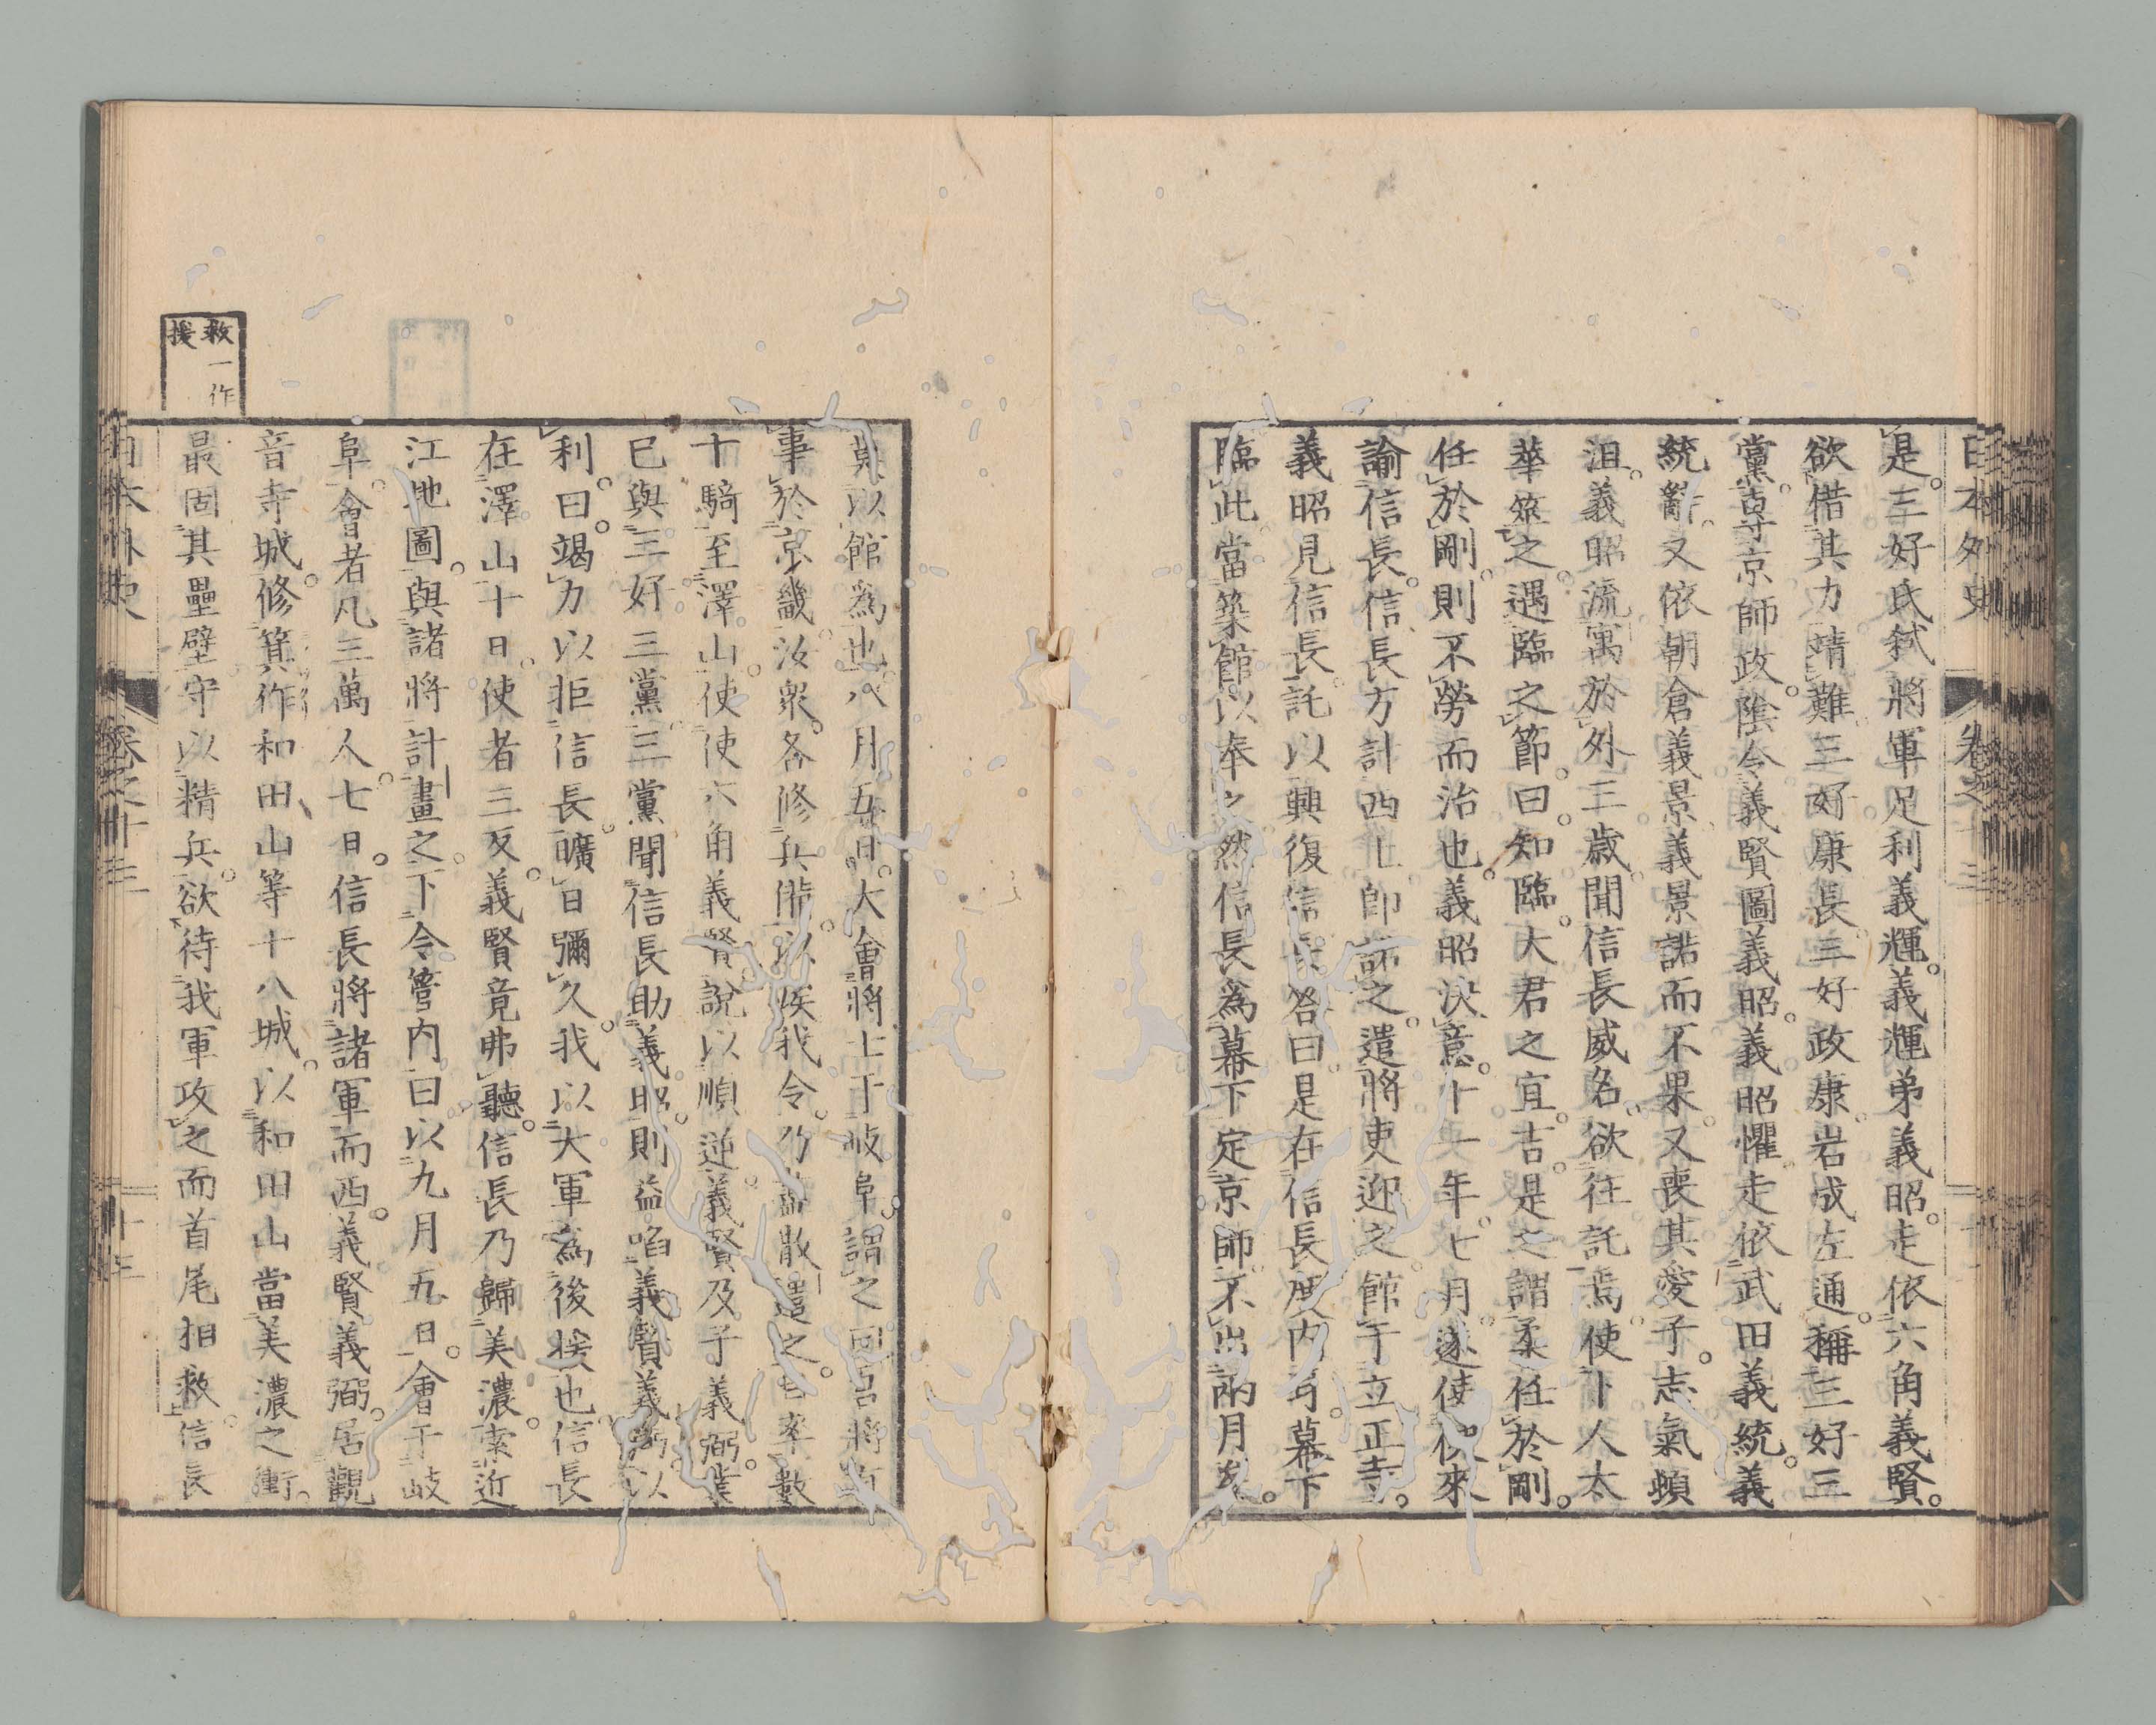 日本外史 卷之十三
是。三好氏弑將軍足利義輝。義輝弟義昭。走依六角義賢。
欲借其力靖難。三好康長三好政康。岩成左通。稱三好三
黨。專京師政。陰令義賢圖義昭。義昭懼。走依武田義統。義
統辭。又依朝倉義景。義景諾而不果。又喪其愛子。志氣頓
沮。義昭流寓於外三歲。聞信長威名。欲往託焉。使卜人太
華筮之。遇臨之節。曰。知臨。大君之宜。吉。是之謂柔任於剛。
任於剛。則不勞而治也。義昭決意。十一年。七月。遂使使來
諭信長。信長方計西上。即諾之。遣將吏迎之。館于立正寺。
義昭見信長。託以興復。信長答曰。是在信長度内耳。幕下
臨此。當築館以奉之。然信長爲幕下定京師。不出兩月矣。
莫以館爲也。八月五日。大會將士于岐阜。謂之曰。吾將有
事於京畿。汝衆。各修兵備。以俟我令。乃盡散遣之。自率數
十騎至澤山。使使六角義賢。說以順逆。義賢及子義弼。業
已與三好三黨。三黨聞信長助義昭。則益啗義賢義弼以
利。曰。竭力以拒信長。曠日彌久。我以大軍爲後援也。信長
在澤山十日。使者三反。義賢竟弗聽。信長乃歸美濃。索近
江地圖。與諸將計畫之。下令管内曰。以九月五日。會于岐
阜。會者凡三萬人。七日。信長將諸軍而西。義賢義弼。居觀
音寺城。修箕作和田山等十八城。以和田山當美濃之衝。
最固其壘壁。守以精兵。欲待我軍攻之。而首尾相救。信長
救一作
援
日本外史 卷之十三 十三